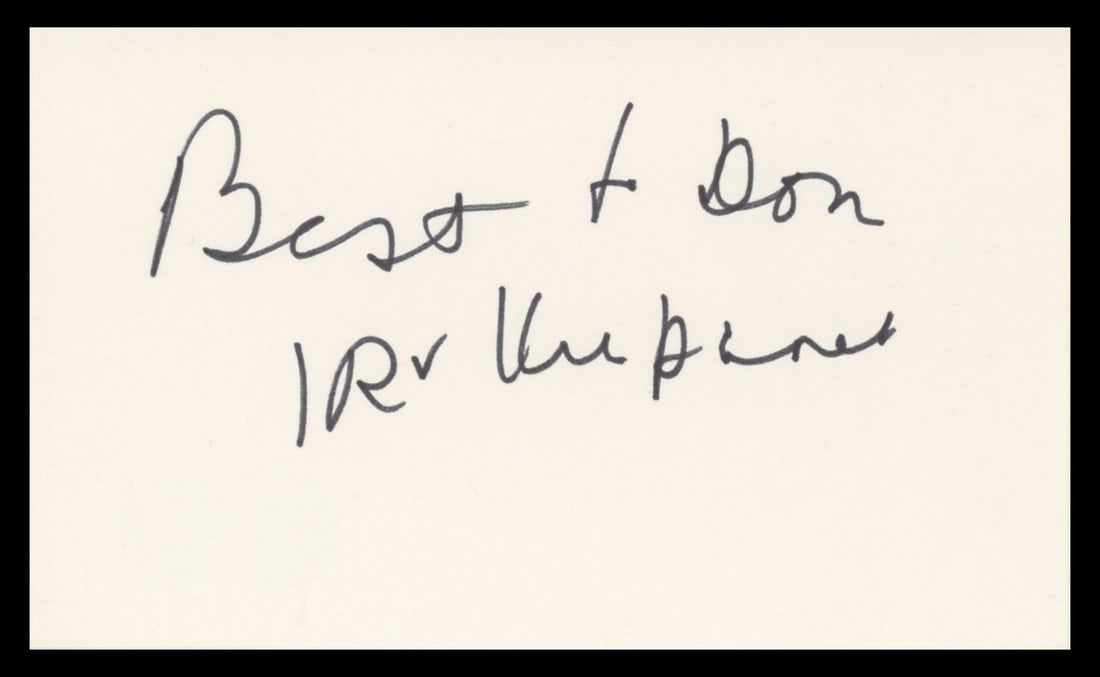 Best t Don
IRv Kupcinet